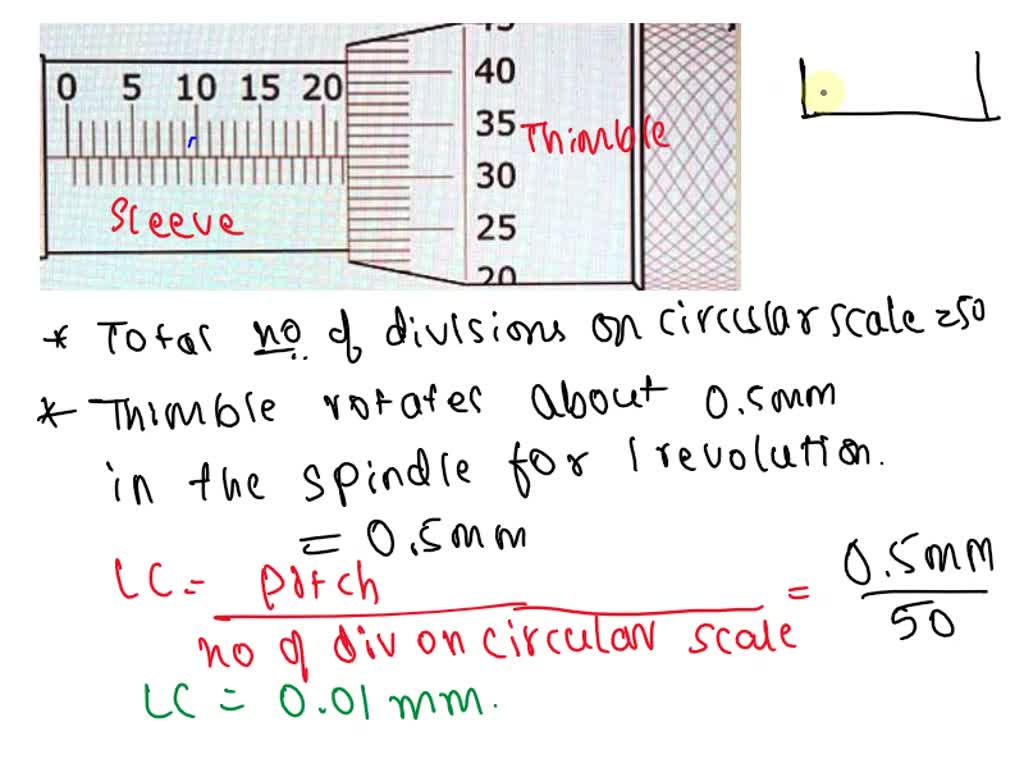 45
0 5 10 15 20
40
35 Thimble
30
Sleeve
25
20
* Total no. of divisions on circular scale = 50
* Thimble rotates about 0.5mm
in the spindle for 1 revolution.
= 0.5mm
LC = pitch / no of div on circular scale = 0.5mm / 50
LC = 0.01 mm.